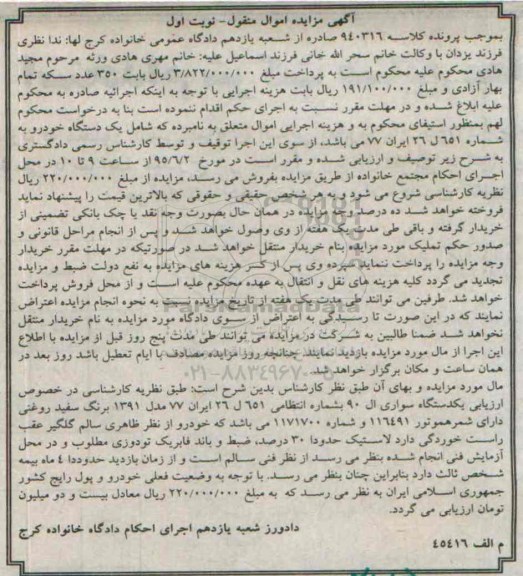 آگهی مزایده اموال منقول- نوبت اول
بموجب پرونده کلاسه ۹٤۰۳۱٦ صادره از شعبه یازدهم دادگاه عمومی خانواده کرج لها: ندا نظری
فرزند یزدان با وکالت خانم سحر الله خانی فرزند اسماعیل علیه: خانم مهری هادی ورثه مرحوم مجید
هادی محکوم علیه محکوم است به پرداخت مبلغ ۳/۸۲۲/۰۰۰/۰۰۰ ریال بابت ۳۵۰ عدد سکه تمام
بهار آزادی و مبلغ ۱۹۱/۱۰۰/۰۰۰ ریال بابت هزینه اجرایی با توجه به اینکه اجرائیه صادره به محکوم
علیه ابلاغ شده و در مهلت مقرر نسبت به اجرای حکم اقدام ننموده است بنا به درخواست محکوم
لهم بمنظور استیفای محکوم به و هزینه اجرایی اموال متعلق به نامبرده که شامل یک دستگاه خودرو به
شماره ٦٥۱ ل ۲٦ ایران ۷۷ می باشد، از سوی این اجرا توقیف و توسط کارشناس رسمی دادگستری
به شرح زیر توصیف و ارزیابی شده و مقرر است در مورخ ۹۵/٦/۲ از ساعت ۹ تا ۱۰ در محل
اجرای احکام مجتمع خانواده از طریق مزایده بفروش می رسد، مزایده از مبلغ ۲۲۰/۰۰۰/۰۰۰ ریال
نظریه کارشناسی شروع می شود و به هر شخص حقیقی و حقوقی که بالاترین قیمت را پیشنهاد نماید
فروخته خواهد شد ده درصد مزایده در همان حال بصورت وجه نقد یا چک بانکی تضمینی از
خریدار گرفته و باقی طی مدت یک هفته از وی وصول خواهد شد و پس از انجام مراحل قانونی و
صدور حکم تملیک مورد مزایده بنام خریدار منتقل خواهد شد در صورتیکه در مهلت مقرر خریدار
وجه مزایده را پرداخت ننماید سپرده وی پس از کسر هزینه های مزایده به نفع دولت ضبط و مزایده
تجدید می گردد کلیه هزینه های نقل و انتقال به عهده محکوم علیه است و از محل فروش پرداخت
خواهد شد. طرفین می توانند طی مدت یک هفته از تاریخ مزایده نسبت به نحوه انجام مزایده اعتراض
نمایند که در این صورت تا رسیدگی به اعتراض از سوی دادگاه مورد مزایده به نام خریدار منتقل
نخواهد شد ضمنا طالبین به شرکت در مزایده می توانند طی مدت پنج روز قبل از مزایده با اطلاع
این اجرا از مال مورد مزایده بازدید نمایند. چنانچه روز مزایده مصادف با ایام تعطیل باشد روز بعد در
همان ساعت و مکان برگزار خواهد شد.
مال مورد مزایده و بهای آن طبق نظر کارشناس بدین شرح است: طبق نظریه کارشناسی در خصوص
ارزیابی یکدستگاه سواری ال ۹۰ بشماره انتظامی ٦٥۱ ل ۲٦ ایران ۷۷ مدل ۱۳۹۱ برنگ سفید روغنی
دارای شمرهموتور ۱۱٦٤۹۱ و شماره ۱۱۷۱۷۰۰ می باشد که خودرو از نظر ظاهری سالم گلگیر عقب
راست خوردگی دارد لاستیک حدودا ۳۰ درصد، ضبط و باند فابریک تودوزی مطلوب و در محل
آزمایش فنی انجام شده بنظر می رسد از نظر فنی سالم است و از زمان بازدید حدوددا ٤ ماه بیمه
شخص ثالث دارد بنابراین چنان بنظر می رسد. با توجه به وضعیت فعلی خودرو و پول رایج کشور
جمهوری اسلامی ایران به نظر می رسد که به مبلغ ۲۲۰/۰۰۰/۰۰۰ ریال معادل بیست و دو میلیون
تومان ارزیابی می گردد.
دادورز شعبه یازدهم اجرای احکام دادگاه خانواده کرج
م الف ٤٥٤۱٦
۰۲۱-۸۸۳٤۹٦۷۰